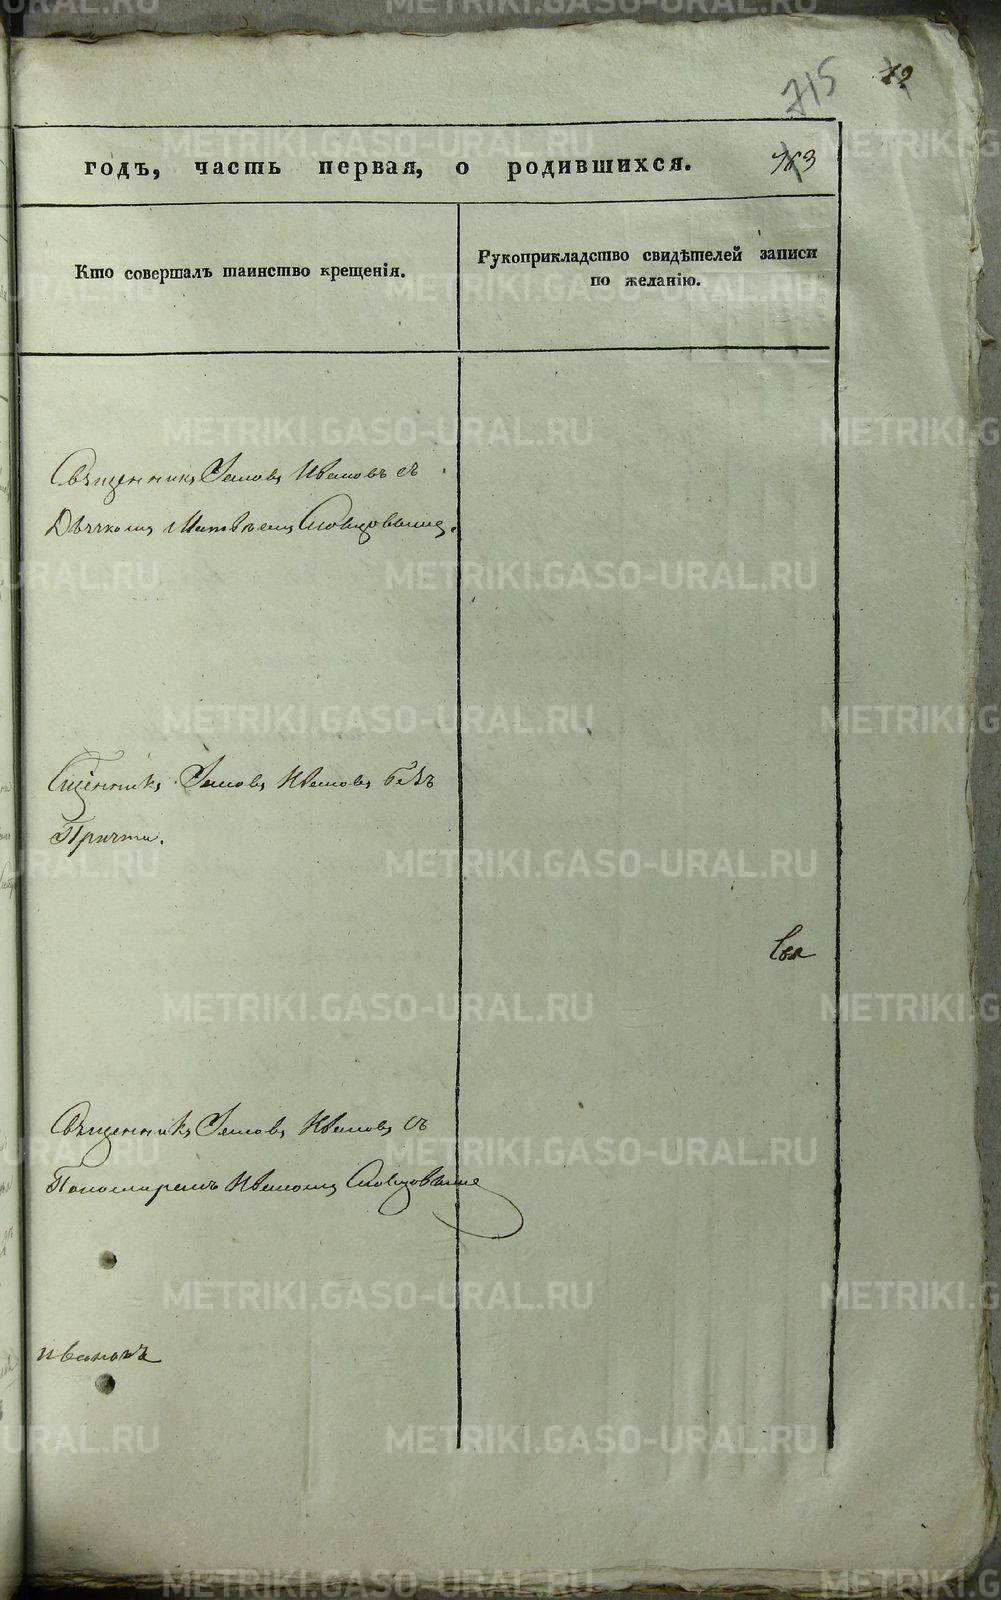 715
72
годъ, часть первая, о родившихся.
183
Кто совершалъ таинство крещенія.
Рукоприкладство свидѣтелей записи
по желанію.
Священникъ Іаковъ Ивановъ съ
Дьячкомъ Матвѣемъ Словцовымъ.
Сщенникъ Іаковъ Ивановъ безъ
Причта.
Свя
Священникъ Іаковъ Ивановъ съ
Пономаремъ Иваномъ Словцовымъ
ивановъ
METRIKI.GASO-URAL.RU